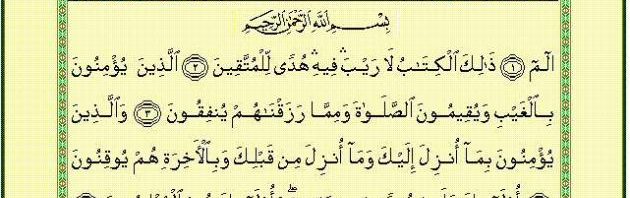 بِسْمِ اللَّهِ الرَّحْمَٰنِ الرَّحِيمِ
الٓمٓ ۝١ ذَٰلِكَ ٱلْكِتَٰبُ لَا رَيْبَ ۛ فِيهِ ۛ هُدًى لِّلْمُتَّقِينَ ۝٢ ٱلَّذِينَ يُؤْمِنُونَ
بِٱلْغَيْبِ وَيُقِيمُونَ ٱلصَّلَوٰةَ وَمِمَّا رَزَقْنَٰهُمْ يُنفِقُونَ ۝٣ وَٱلَّذِينَ
يُؤْمِنُونَ بِمَآ أُنزِلَ إِلَيْكَ وَمَآ أُنزِلَ مِن قَبْلِكَ وَبِٱلْءَاخِرَةِ هُمْ يُوقِنُونَ